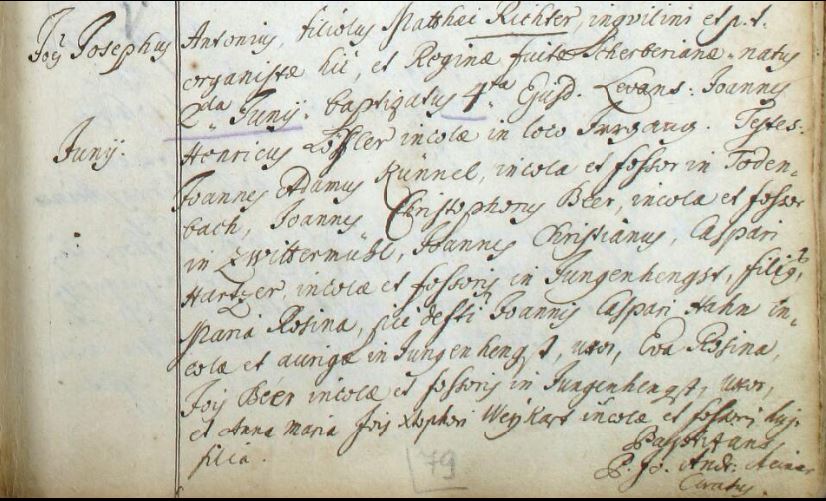 Jois Josephus Antonius, filiolus Matthaei Richter, inquilini et p.t.
organistae hic, et Reginae Scherberianae. natus
2da Junij. baptizatus 4ta Ejusd. Levans: Joannes
Junij. Henricus Löffler incola in loco Irrgang. Testes:
Joannes Adamus Künnel, incola et fossor in Toden-
bach, Joannes Christophorus Beer, incola et fossor
in Zwittermühl, Joannes Christianus, Caspari
Hartzer, incolae et fossoris in Jungenhengst, filig,
Maria Rosina, Joannis Caspari Hahn in-
colae et aurigae in Jungenhengst, uxor, Eva Rosina,
Jois Beer incolae et fossoris in Jungenhengst, uxor,
et Anna Maria Jois Xtophori Weykart incolae et fossoris huj.
filia.
P. Jo. Andr.
Curatus.
79